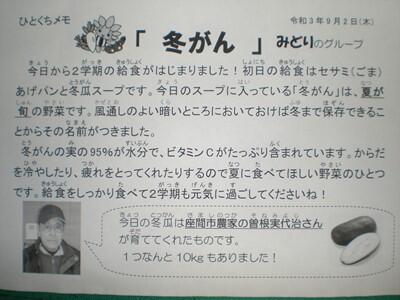 ひとくちメモ
令和3年9月2日(木)
「 冬がん 」 みどりのグループ
今日から2学期の給食がはじまりました！初日の給食はセサミ(ごま)
あげパンと冬瓜スープです。今日のスープに入っている「冬がん」は、夏が
旬の野菜です。風通しのよい暗いところにおいておけば冬まで保存できるこ
とからその名前がつきました。
冬がんの実の95%が水分で、ビタミンCがたっぷり含まれています。からだ
を冷やしたり、疲れをとってくれたりするので夏に食べてほしい野菜のひとつ
です。給食をしっかり食べて2学期も元気に過ごしてくださいね！
今日の冬瓜は座間市農家の曽根実代治さん
が育ててくれたものです。
1つなんと10kgもありました！